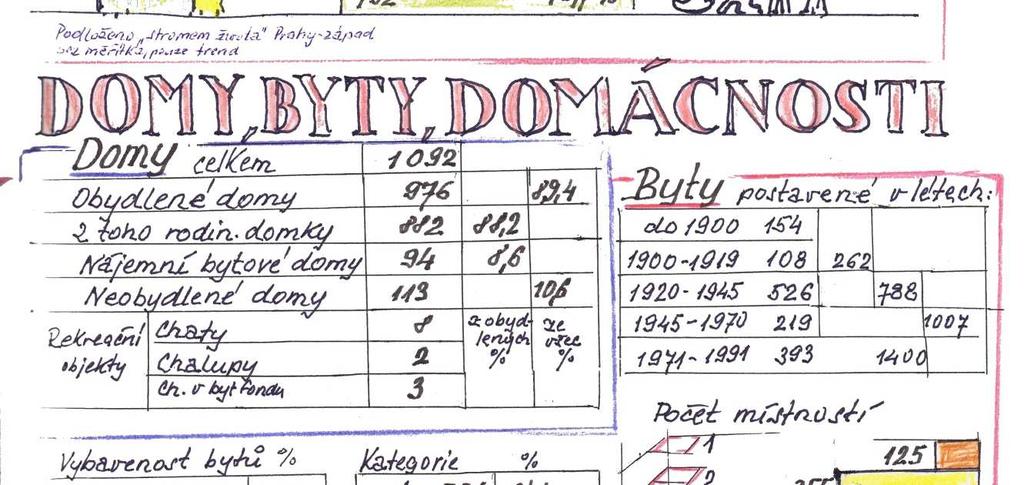 Podloženo „stromem života" Prahy-západ
bez měřítka, pouze trend
DOMY, BYTY, DOMÁCNOSTI
Domy celkem 1092
Obydlené domy 976 89,4
z toho rodin. domky 882 88,2
Nájemní bytové domy 94 8,6
Neobydlené domy 113 10,6
Rekreační objekty
Chaty 8
Chalupy 2
Ch. v byt fondu 3
z obydlených %
ze všec %
Byty postavené v létech:
do 1900 154
1900-1919 108 262
1920-1945 526 788
1945-1970 219 1007
1971-1991 393 1400
Počet místností
1 125
2
Vybavenost bytů %
Kategorie %